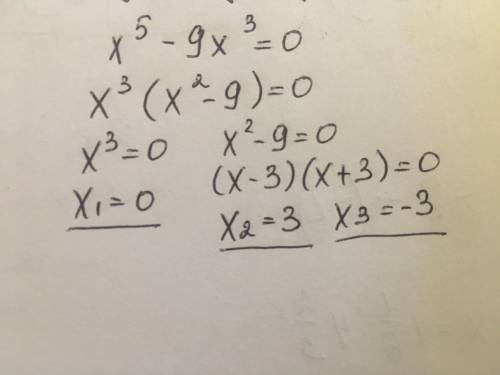 x⁵ - 9x³ = 0
x³ (x² - 9) = 0
x³ = 0 x² - 9 = 0
(x - 3)(x + 3) = 0
x₁ = 0 x₂ = 3 x₃ = -3